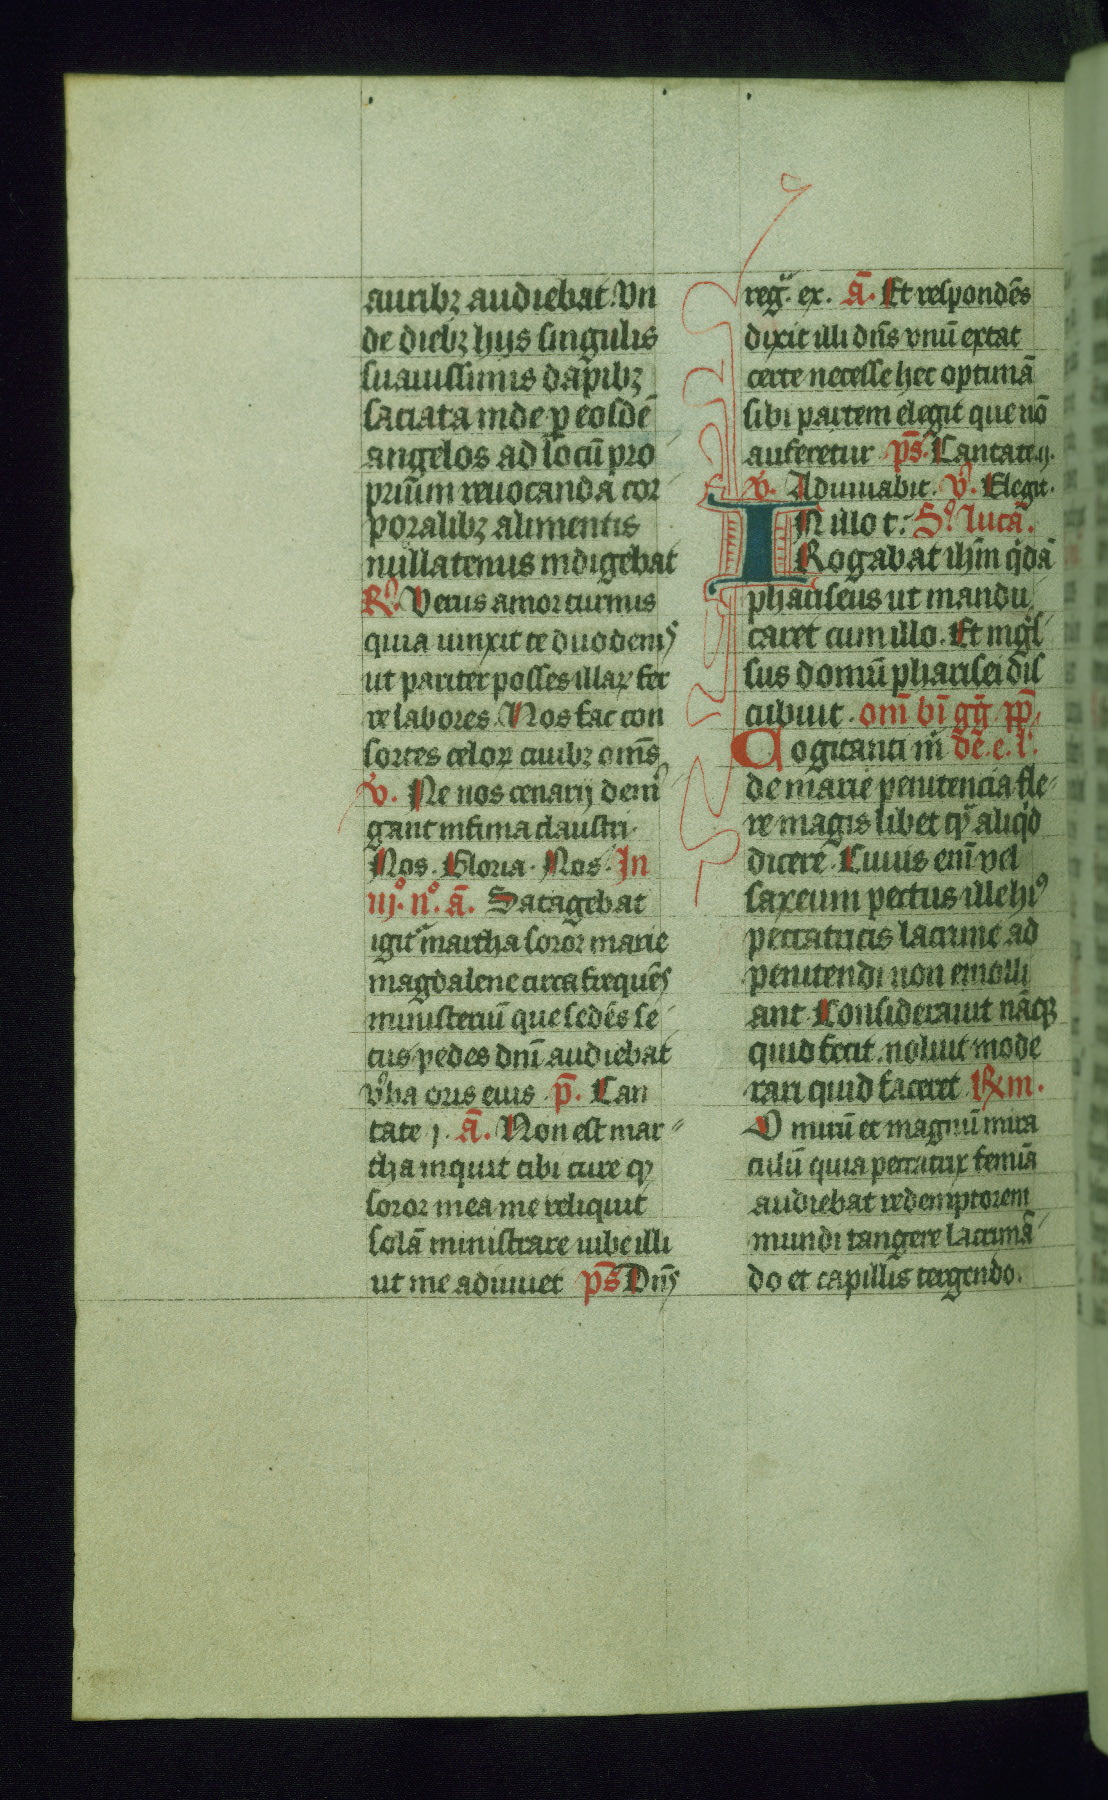 auribꝫ audiebat. Vn
de diebꝫ hijs singulis
suauissimis dapibꝫ
saciata inde ꝑ eosdē
angelos ad locū pro
priūm reuocanda cor
poralibꝫ alimentis
nullatenus indigebat
R̊. Verus amor turnus
quia uinxit te duodenis
ut pariter posses illaꝝ fer
re labores. Nos fac con
sortes celoꝝ ciuibꝫ om̄s
v. Ne nos cenarij demͥ
gant infima claustri.
Nos. Gloria. Nos. In
iijº. nº. ā. Satagebat
igit᷑ martha soror marie
magdalene circa frequēs
ministeriū que sedēs se
cus pedes dn̄i audiebat
v̾ba oris eius. p̄. Can
tate j. ā. Non est mar
tha inquit tibi cure qͥ
soror mea me reliquit
solā ministrare iube illi
ut me adiuuet ps̄ Dn̄s
reg᷑. ex. Ā. Et respondēs
dixit illi dn̄s vnū extat
certe necesse hec optimā
sibi partem elegit que nō
auferetur ps̄. Cantate ij.
v̾. Adiuuabit. v̾. Elegit.
IN illo t. Sº. lucā.
Rogabat ihm̄ q̇dā
phariseus ut mandu
caret cum illo. Et ingͣs
sus domū pharisei dis
cubuit. om̄ bī gḡ. pp̄
Cogitanti m̄ dē. e. l᷑.
de marie penitencia fle
re magis libet qͣ aliqͥd
dicere. Cuius eni vel
saxeum pectus ille hiꝰ
peccatricis lacrime ad
penitendi non emolli
ant. Considerauit nāqꝫ
quid fecit. noluit mode
rari quid faceret. Rm.
O mirū et magnū mira
culū quia peccatrix femīa
audiebat redemptorem
mundi tangere lacrimā
do et capillis tergendo.